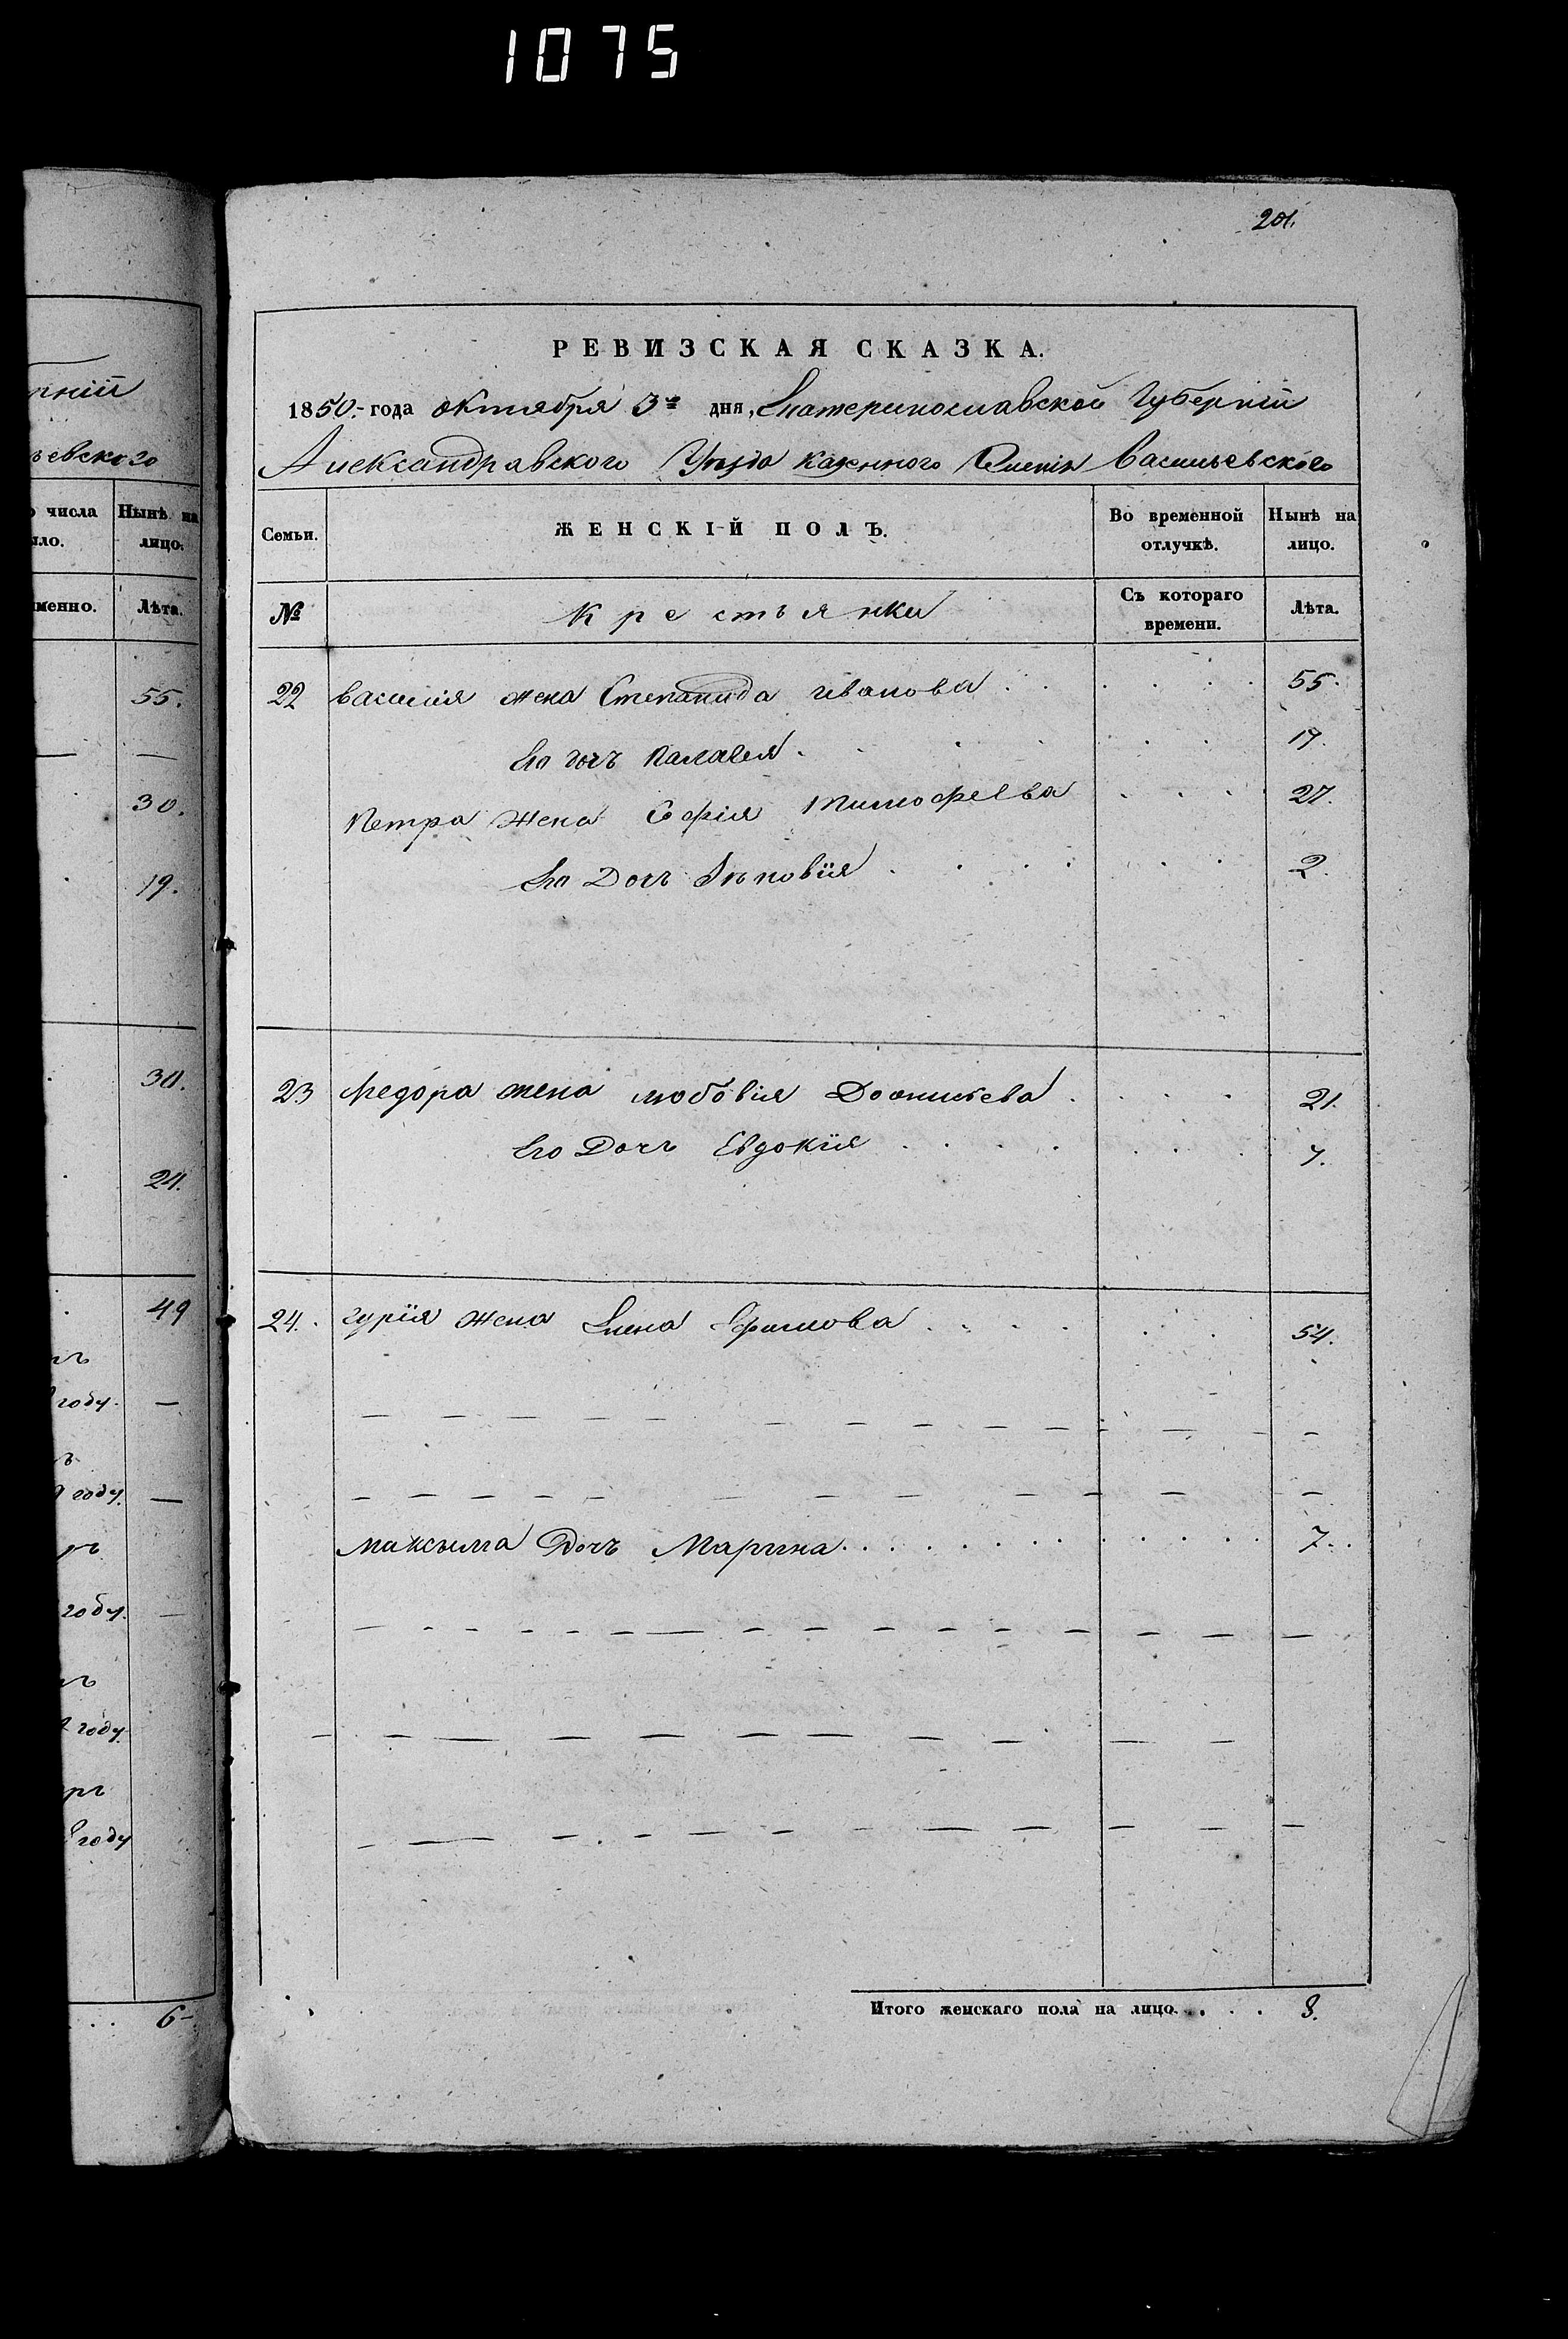 1075
201.
рній
ьевского
числа
ло.
Нынѣ на
лицо.
менно.
Лѣта.
55.
—
30.
19.
30.
24.
49
году. —
году. —
году. —
году
году
6
РЕВИЗСКАЯ СКАЗКА.
1850.- года октября 3го дня, Екатеринославской Губерніи
Александравского Уѣзда казенного Селенія Васильевского
Семьи.
ЖЕНСКІЙ ПОЛЪ.
Во временной отлучкѣ.
Нынѣ на лицо.
№
Крестьянки
Съ котораго времени.
Лѣта.
22 василія жена Степанида иванова 55.
Его дочь Палагея 17.
Петра жена Софія Тимофеева 27.
Его Дочь 2.
23 Федора жена любовія 21.
Его Дочь Евдокія
24. гурія жена Елена Ефимова 54.
максыма Дочь Марина 7.
Итого женскаго пола на лицо 8.